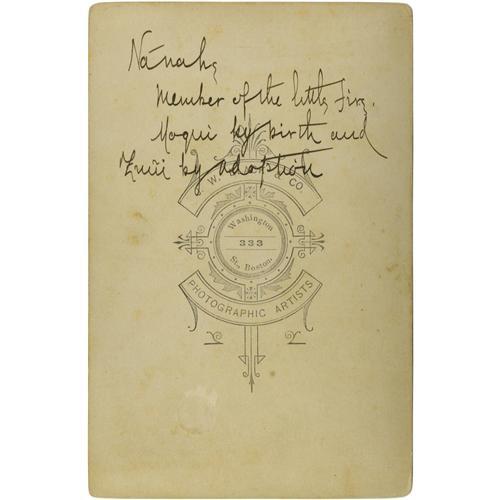 Nānahe
Member of the little fire.
Moqui by birth and
Zuñi by adoption
W. & CO.
Washington
333
St. Boston.
PHOTOGRAPHIC ARTISTS